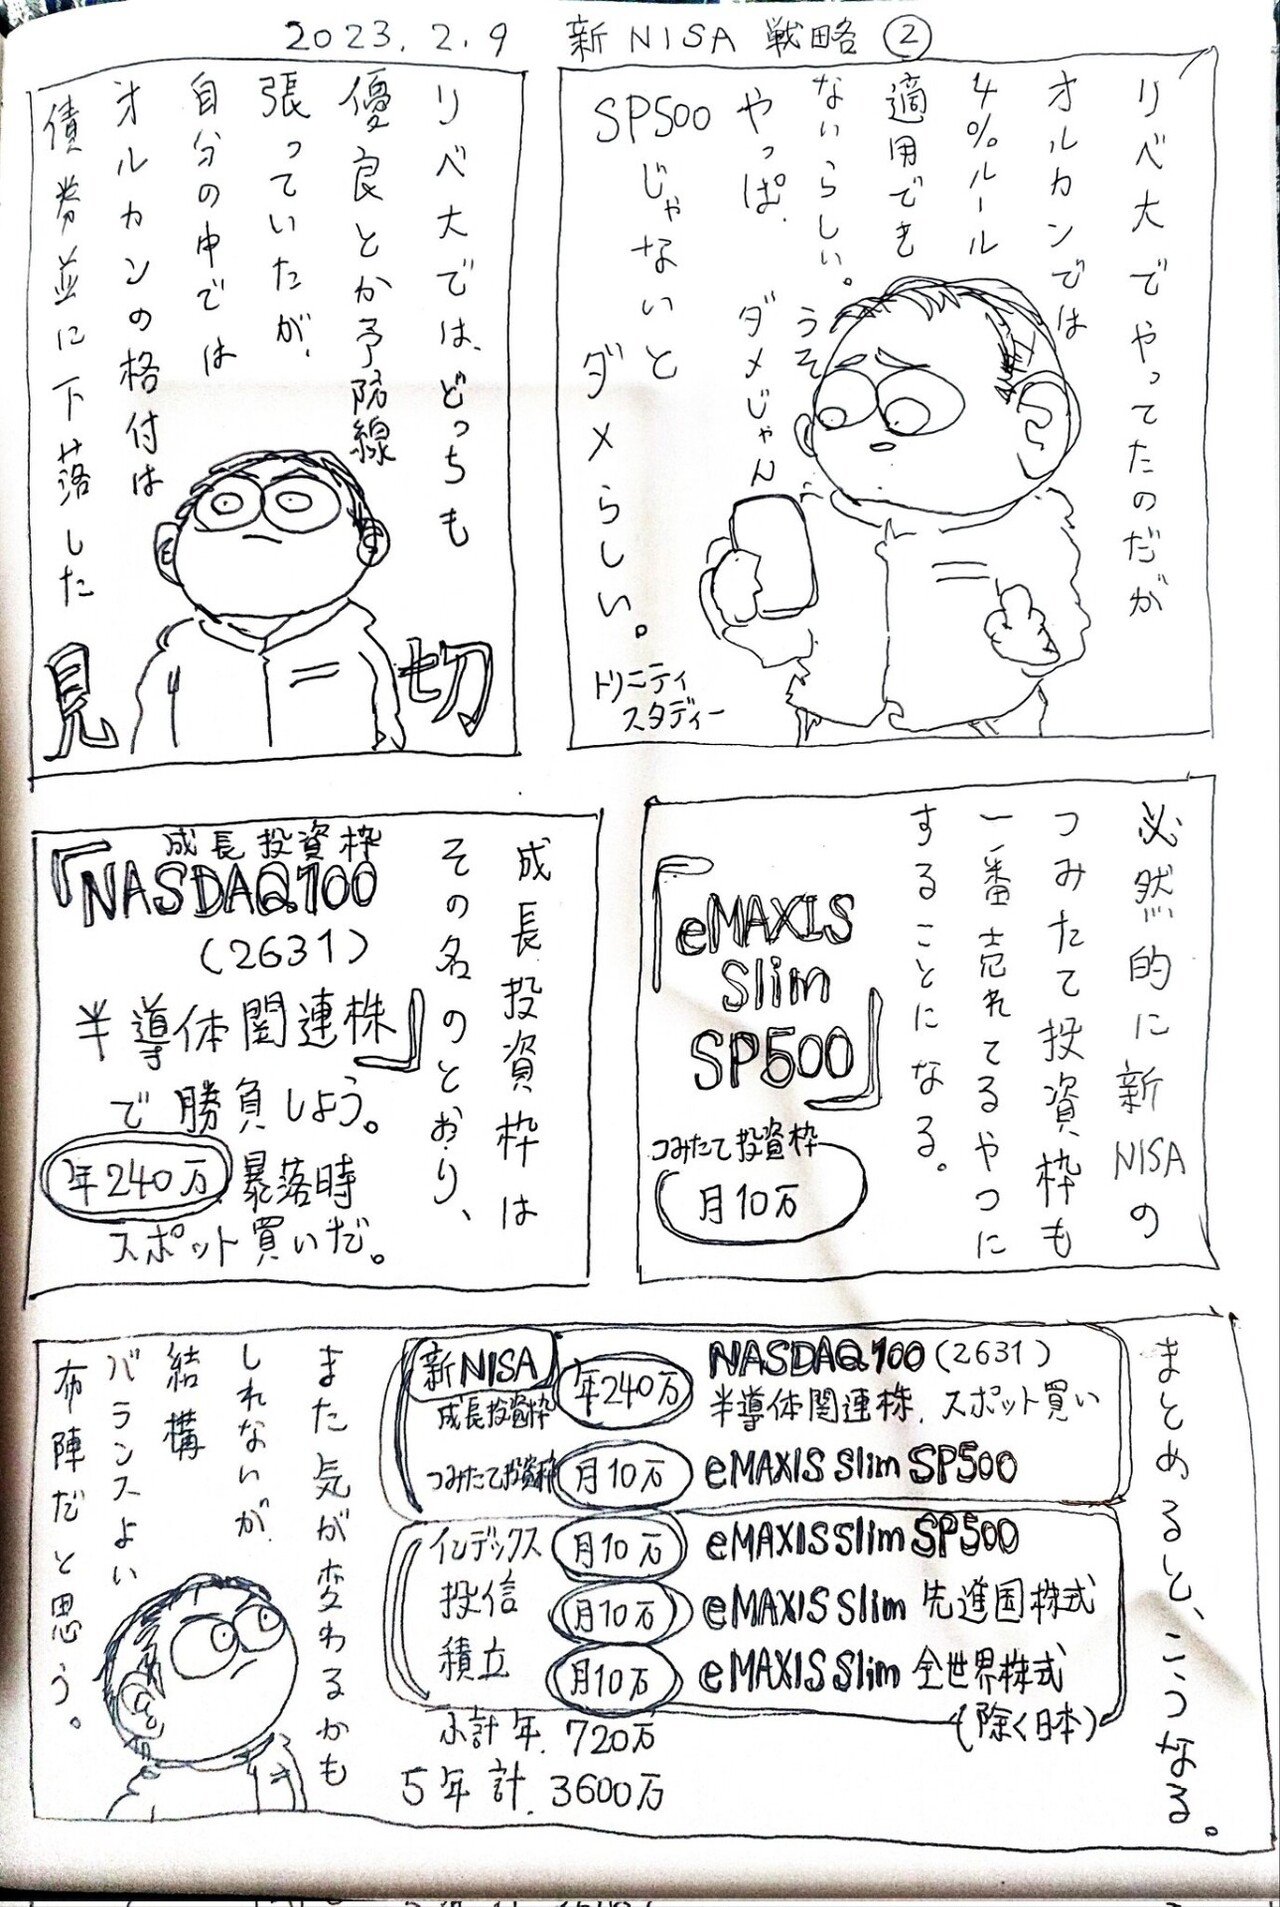 2023.2.9 新NISA戦略②
リベ大でやってたのだが
オルカンでは
4%ルール
適用でき
ないらしい。
うそ
やっぱ、
ダメじゃん
SP500
じゃないと
ダメらしい。
トリニティ
スタディー
リベ大では、どっちも
優良とか予防線
張っていたが、
自分の中では
オルカンの格付は
債券並に下落した
見切
必然的に新NISAの
つみたて投資枠も
一番売れてるやつに
することになる。
『eMAXIS
Slim
SP500』
つみたて投資枠
月10万
成長投資枠は
その名のとおり、
成長投資枠
『NASDAQ100
(2631)
半導体関連株』
で勝負しよう。
年240万 暴落時
スポット買いだ。
まとめると、こうなる。
新NISA
成長投資枠 年240万 NASDAQ100(2631)
半導体関連株、スポット買い
つみたて投資枠 月10万 eMAXIS Slim SP500
インデックス 月10万 eMAXIS Slim SP500
投信 月10万 eMAXIS Slim 先進国株式
積立 月10万 eMAXIS Slim 全世界株式
(除く日本)
小計年、720万
5年計、3600万
また気が変わるかも
しれないが、
結構
バランスよい
布陣だと思う。